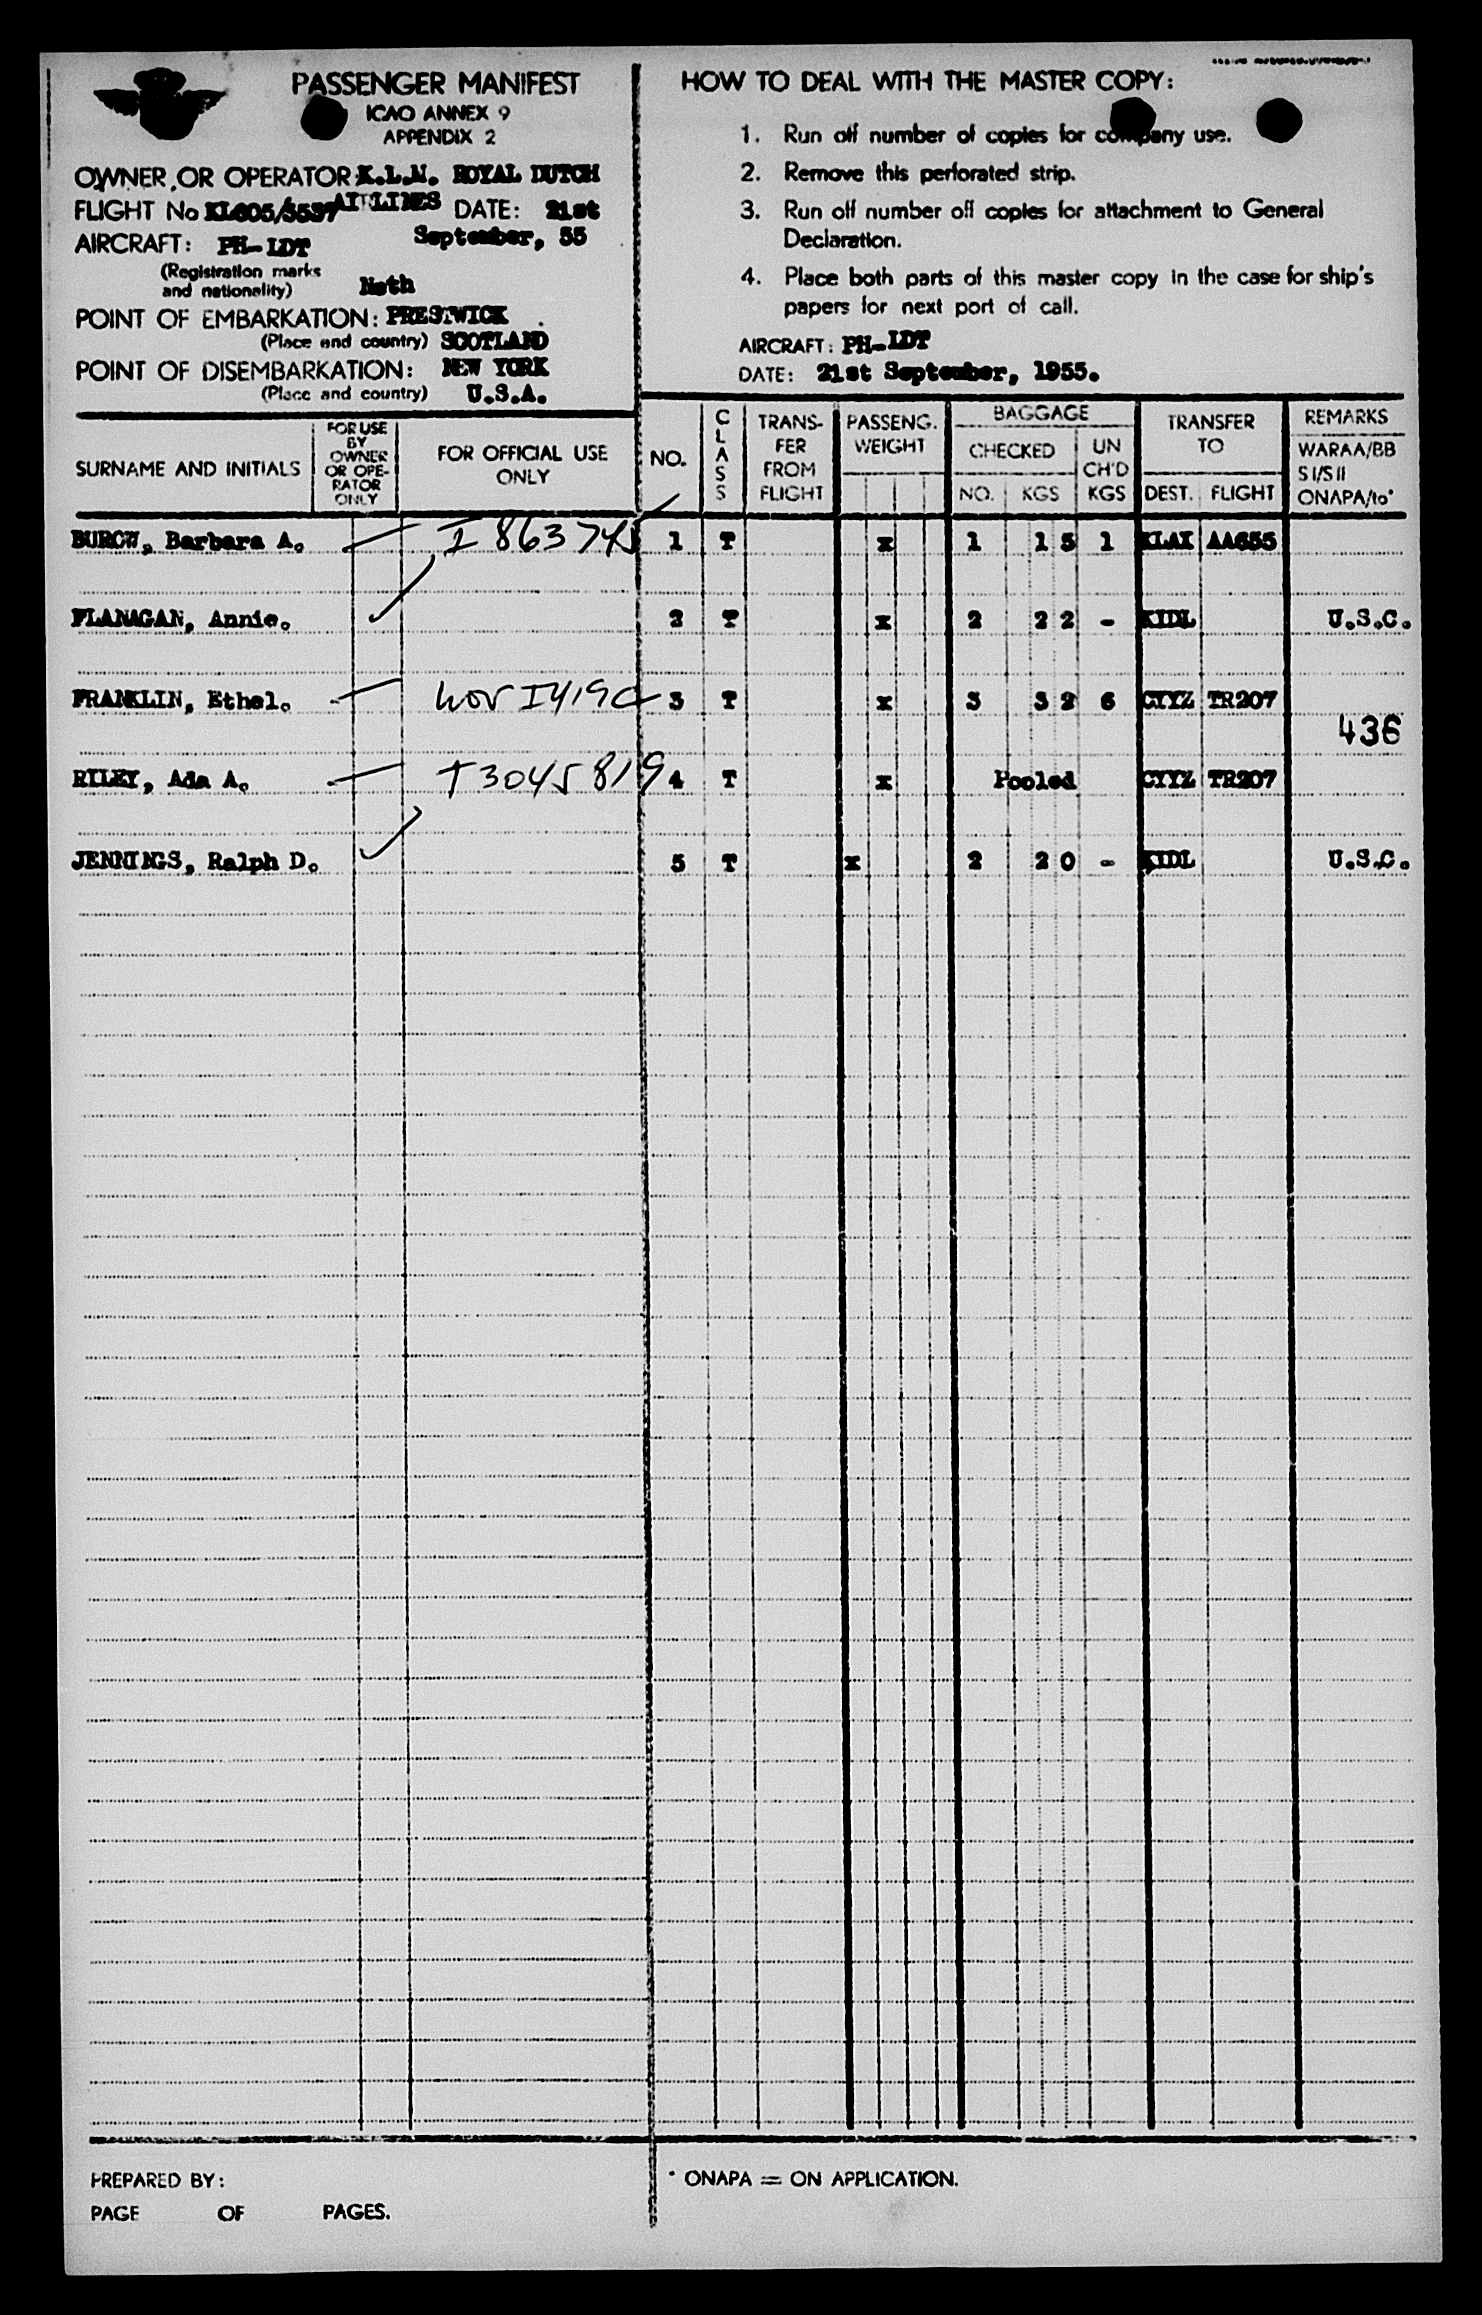 PASSENGER MANIFEST
ICAO ANNEX 9
APPENDIX 2
OWNER OR OPERATOR K.L.M. ROYAL DUTCH
AIRLINES
FLIGHT No KL605/5537 DATE: 21st
September, 55
AIRCRAFT: PH-LDT
(Registration marks
and nationality) Neth
POINT OF EMBARKATION: PRESTWICK
(Place and country) SCOTLAND
POINT OF DISEMBARKATION: NEW YORK
(Place and country) U.S.A.
HOW TO DEAL WITH THE MASTER COPY:
1. Run off number of copies for company use.
2. Remove this perforated strip.
3. Run off number off copies for attachment to General
Declaration.
4. Place both parts of this master copy in the case for ship's
papers for next port of call.
AIRCRAFT: PH-LDT
DATE: 21st September, 1955.
SURNAME AND INITIALS
FOR USE
BY
OWNER
OR OPE-
RATOR
ONLY
FOR OFFICIAL USE
ONLY
NO.
CLASS
TRANS-
FER
FROM
FLIGHT
PASSENG.
WEIGHT
BAGGAGE
CHECKED
NO. KGS
UN
CH'D
KGS
TRANSFER
TO
DEST. FLIGHT
REMARKS
WARAA/BB
S I/S II
ONAPA/to*
BUROW, Barbara A. I 863745 1 T x 1 15 1 KLAX AA655
FLANAGAN, Annie. 2 T x 2 22 - KIDL U.S.C.
FRANKLIN, Ethel. I419 3 T x 3 32 6 CYYZ TR207
436
RILEY, Ada A. T3045819 4 T x Pooled CYYZ TR207
JENNINGS, Ralph D. 5 T x 2 20 - KIDL U.S.C.
PREPARED BY:
PAGE OF PAGES.
* ONAPA = ON APPLICATION.